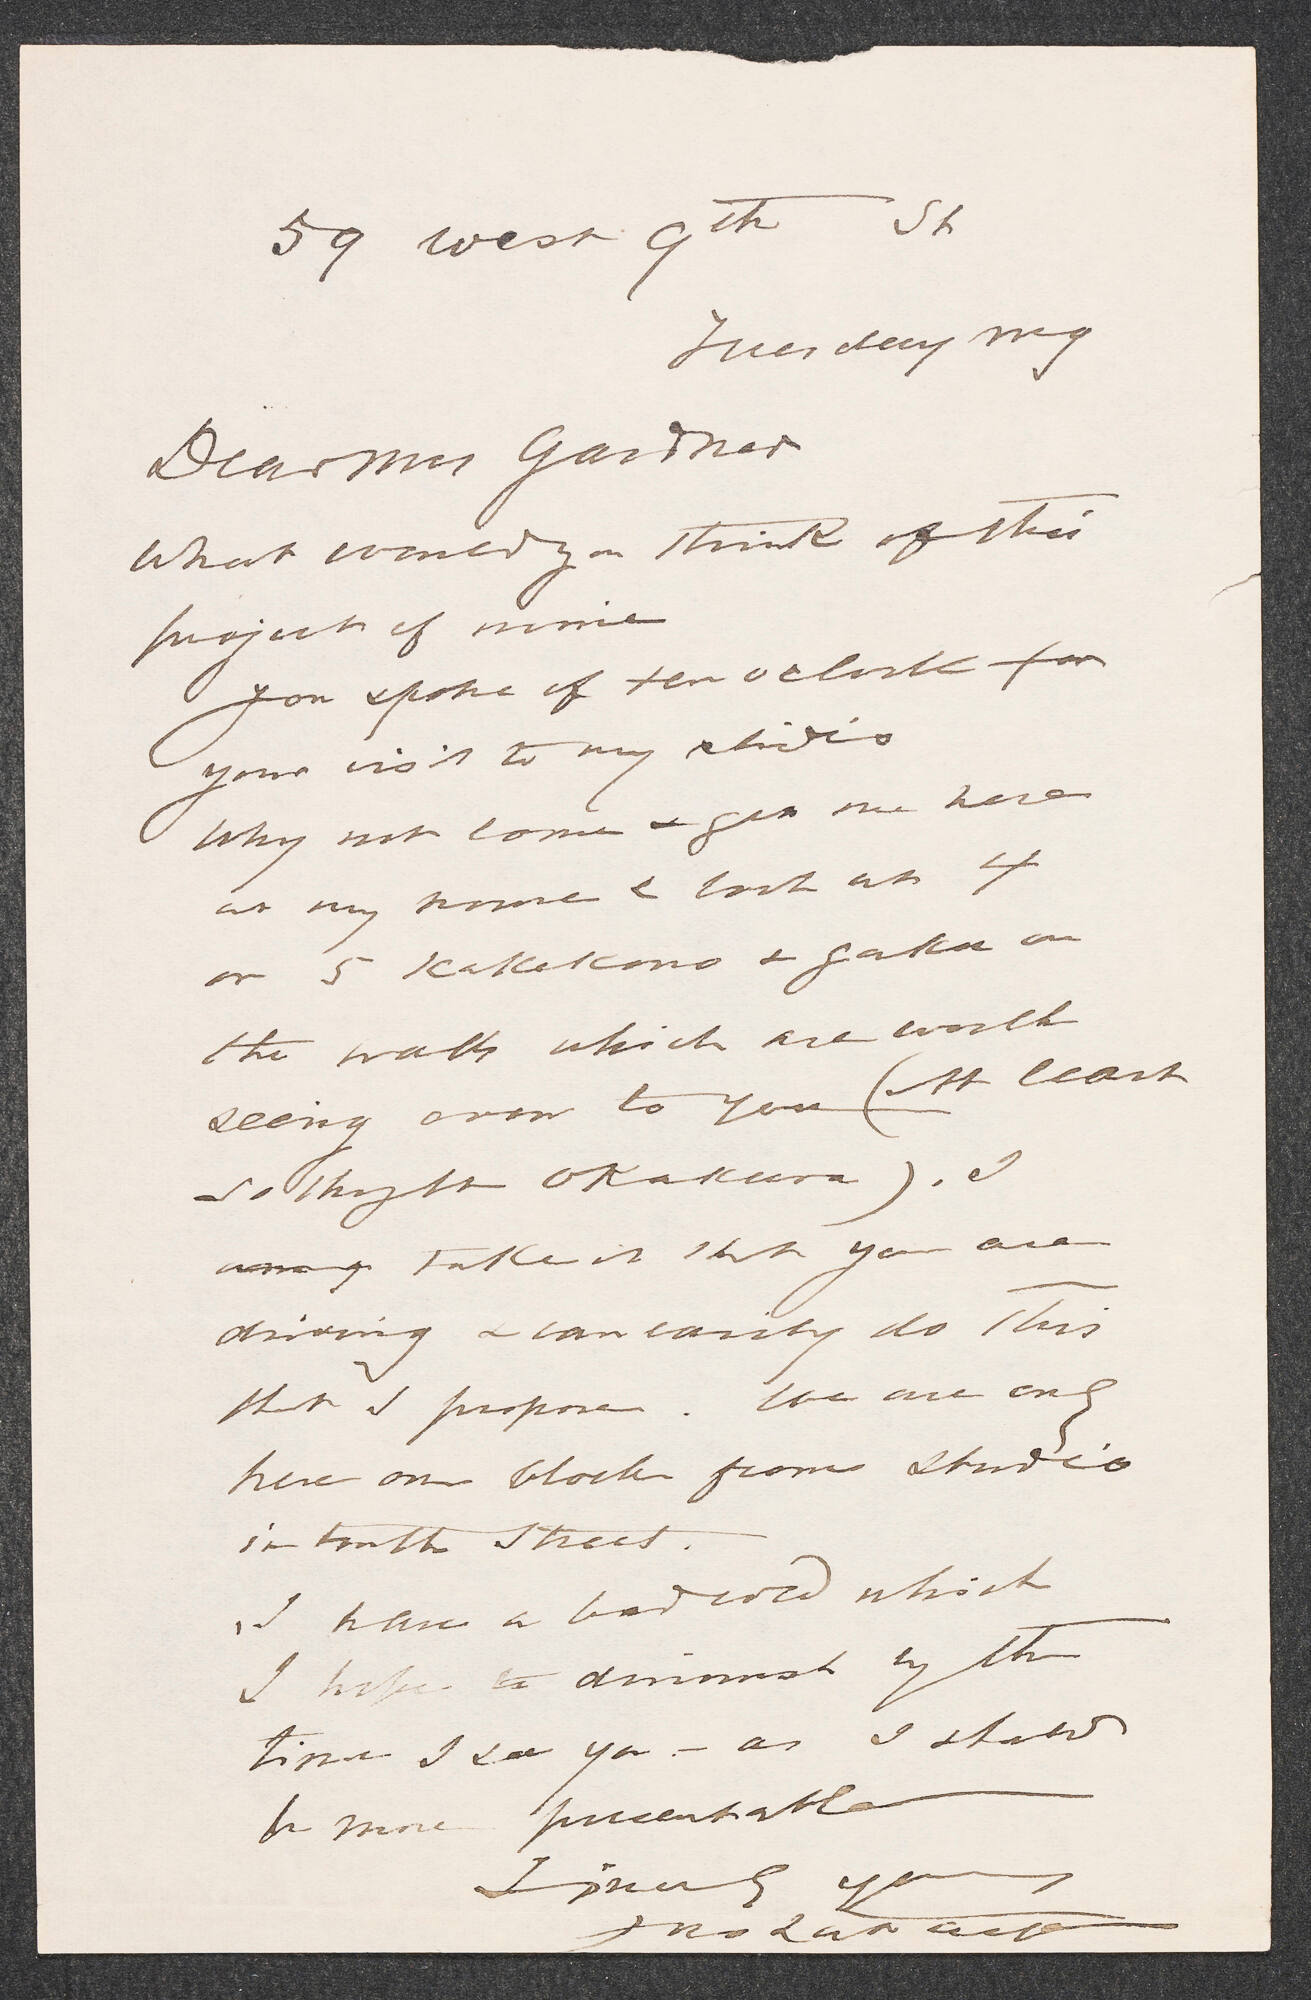 59 west 9th St
Tuesday mg
Dear Mrs Gardner
What would you think of this
project of mine
you spoke of ten oclock for
your visit to my studio
Why not come & get me here
at my home & look at 4
or 5 Kakekono & gaku on
the walls which are worth
seeing even to you (At least
so thught Okakura). I
take it that you are
driving & can easily do this
that I propose. We are only
here one block from studio
in tenth Street.
I have a bad cold which
I hope to diminish by the
time I see you - as I should
be more presentable
Sincerely yours
Jno La Farge